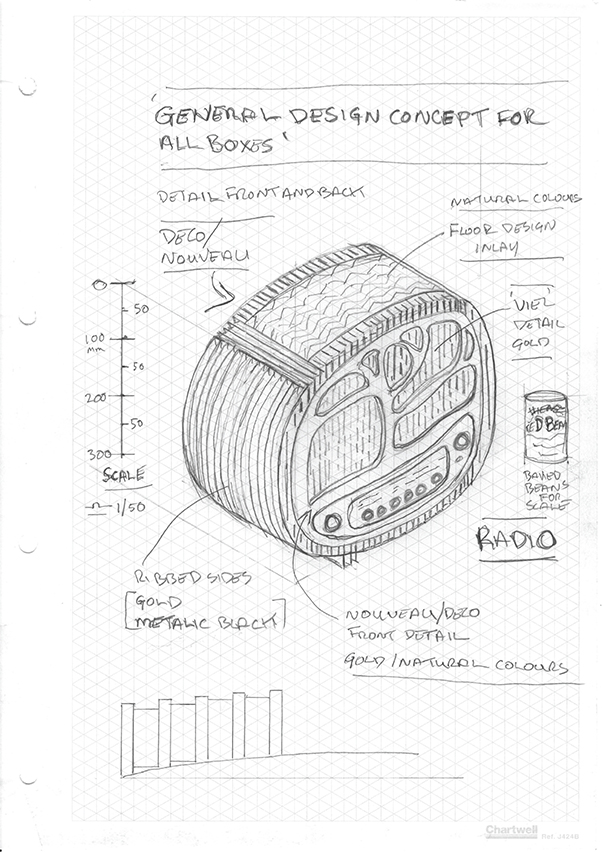 'GENERAL DESIGN CONCEPT FOR
ALL BOXES'
DETAIL FRONT AND BACK
DECO/
NOUVEAU
NATURAL COLOURS
FLOOR DESIGN
INLAY
'VIEZ'
DETAIL
GOLD
0
50
100
mm
50
200
50
300
SCALE
1/50
BAKED
BEANS
FOR
SCALE
RADIO
RIBBED SIDES
[GOLD
METALIC BLACK]
NOUVEAU/DECO
FRONT DETAIL
GOLD/NATURAL COLOURS
Chartwell
Ref. J424B